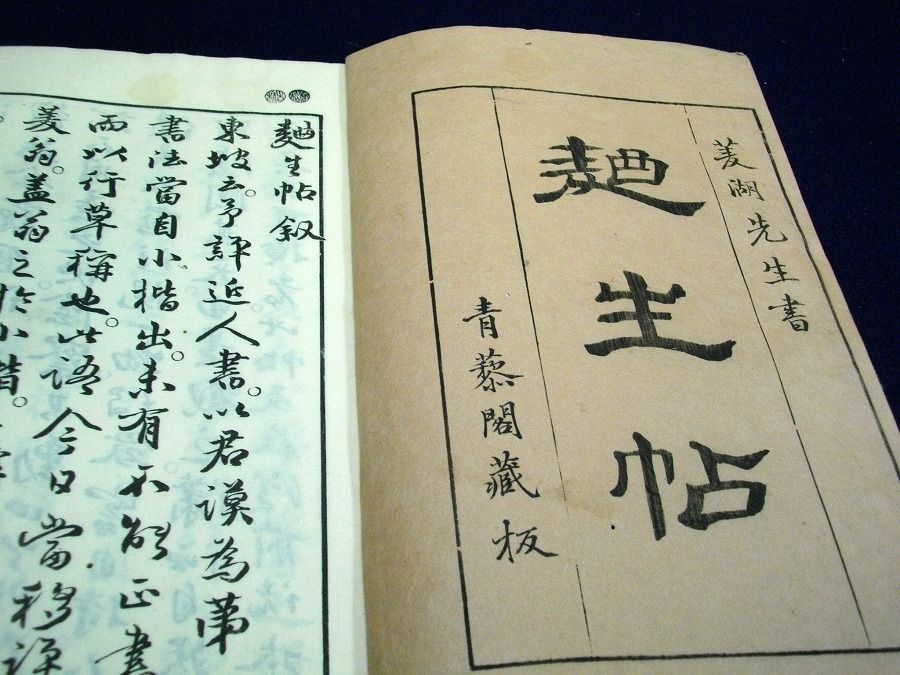 菱湖先生書
麯生帖
青藜閣藏板
麯生帖叙
東坡云。予評近人書。以君謨為第
書法當自小楷出。未有不能正書
而以行草稱也。此語今日當移評
菱翁。盖翁之於小楷。